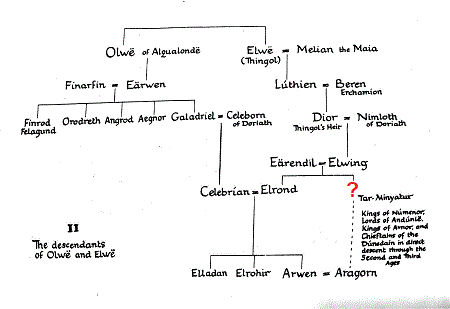 Olwë of Alqualondë
Elwë = Melian the Maia
(Thingol)
Finarfin = Eärwen
Lúthien = Beren
Erchamion
Finrod Felagund
Orodreth Angrod Aegnor Galadriel = Celeborn
of Doriath
Dior = Nimloth
Thingol's Heir
of Doriath
Eärendil = Elwing
Celebrían = Elrond
?
Tar-Minyatur
Kings of Númenor,
Lords of Andúnië,
Kings of Arnor, and
Chieftains of the
Dúnedain in direct
descent through the
Second and Third
Ages
II
The descendants
of Olwë and Elwë
Elladan Elrohir Arwen = Aragorn